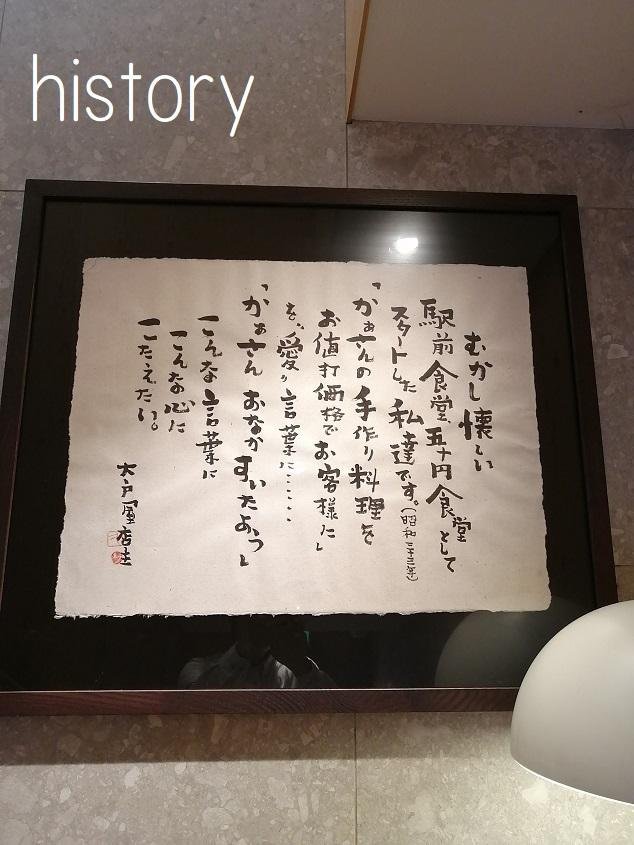 history
むかし懐しい
駅前食堂、五十円食堂として
スタートした私達です。(昭和三十三年)
「かあさんの手作り料理を
お値打価格でお客様に」
を、愛の言葉に‥‥
「かあさん おなかすいたよう」
こんな言葉に
こんな心に
こたえたい。
大戸屋店主